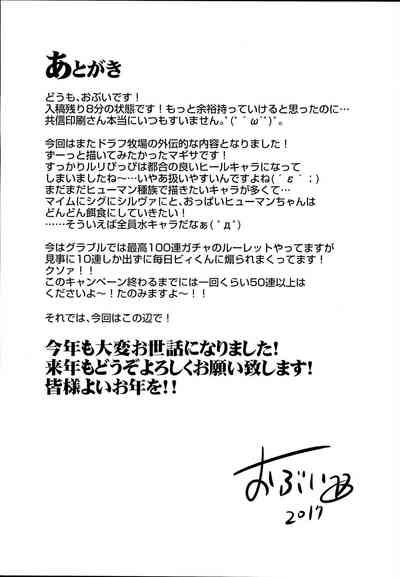 あとがき
どうも、おぶいです！
入稿残り8分の状態です！もっと余裕持っていけると思ったのに…
共信印刷さん本当にいつもすいません。ﾟ(ﾟ´ω`ﾟ)ﾟ。
今回はまたドラフ牧場の外伝的な内容となりました！
ずーっと描いてみたかったマギサです！
すっかりルリぴっぴは都合の良いヒールキャラになって
しまいましたね〜…いやあ扱いやすいんですよね(´ε｀；)
まだまだヒューマン種族で描きたいキャラが多くて…
マイムにシグにシルヴァにと、おっぱいヒューマンちゃんは
どんどん餌食にしていきたい！
……そういえば全員水キャラだなぁ(ﾟдﾟ)
今はグラブルでは最高100連ガチャのルーレットやってますが
見事に10連しか出ずに毎日ビィくんに煽られまくってます！
クソァ！！
このキャンペーン終わるまでには一回くらい50連以上は
くださいよ〜！たのみますよ〜！！
それでは、今回はこの辺で！
今年も大変お世話になりました！
来年もどうぞよろしくお願い致します！
皆様よいお年を！！
おぶい
2017